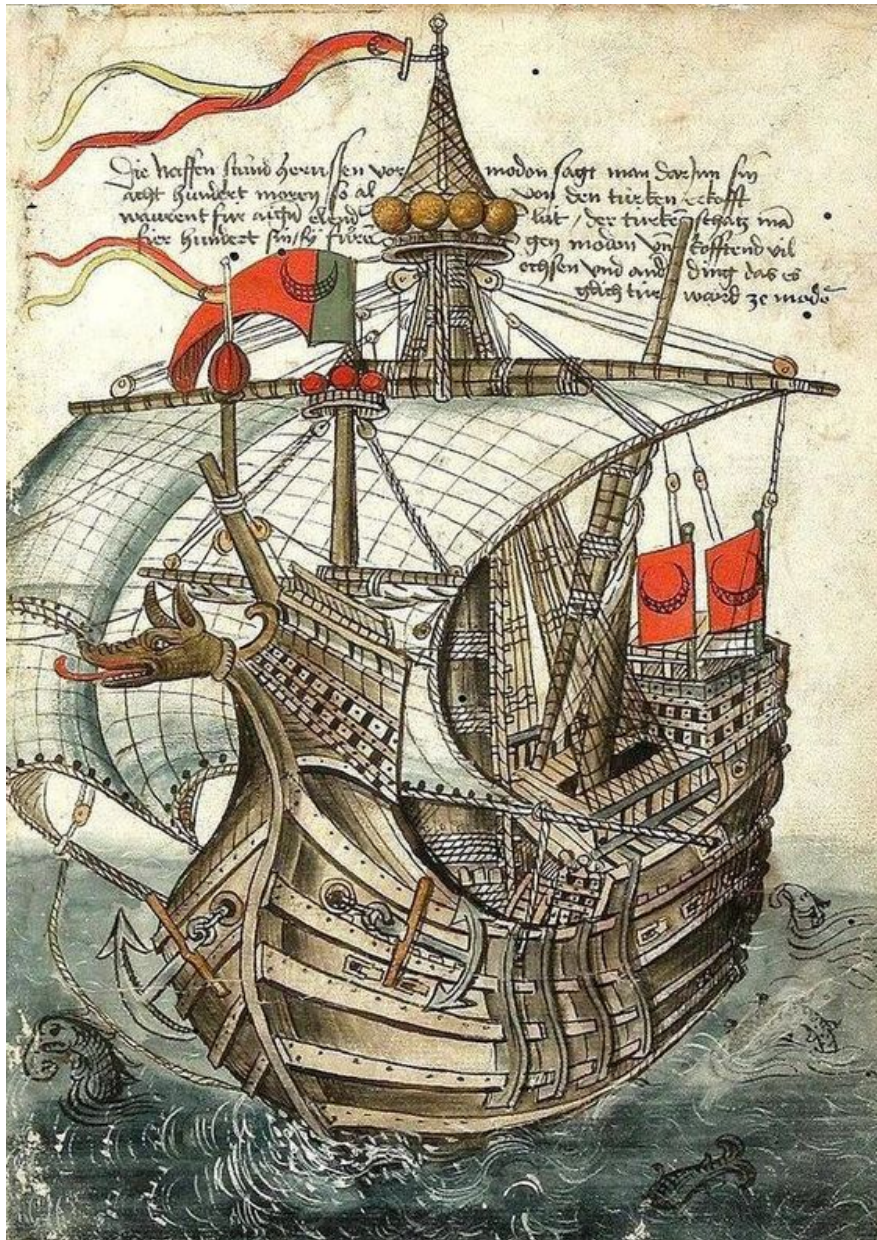 Die naffen stund herussen vor modon sagt man dar jnn sin
acht hundert moren so al von den türken erkofft
warent für aigen elend lüt / der türken schatz
fier hundert füren gen modon vn kofftend vil
ochsen vnd and ding das es
glich tür ward ze modō